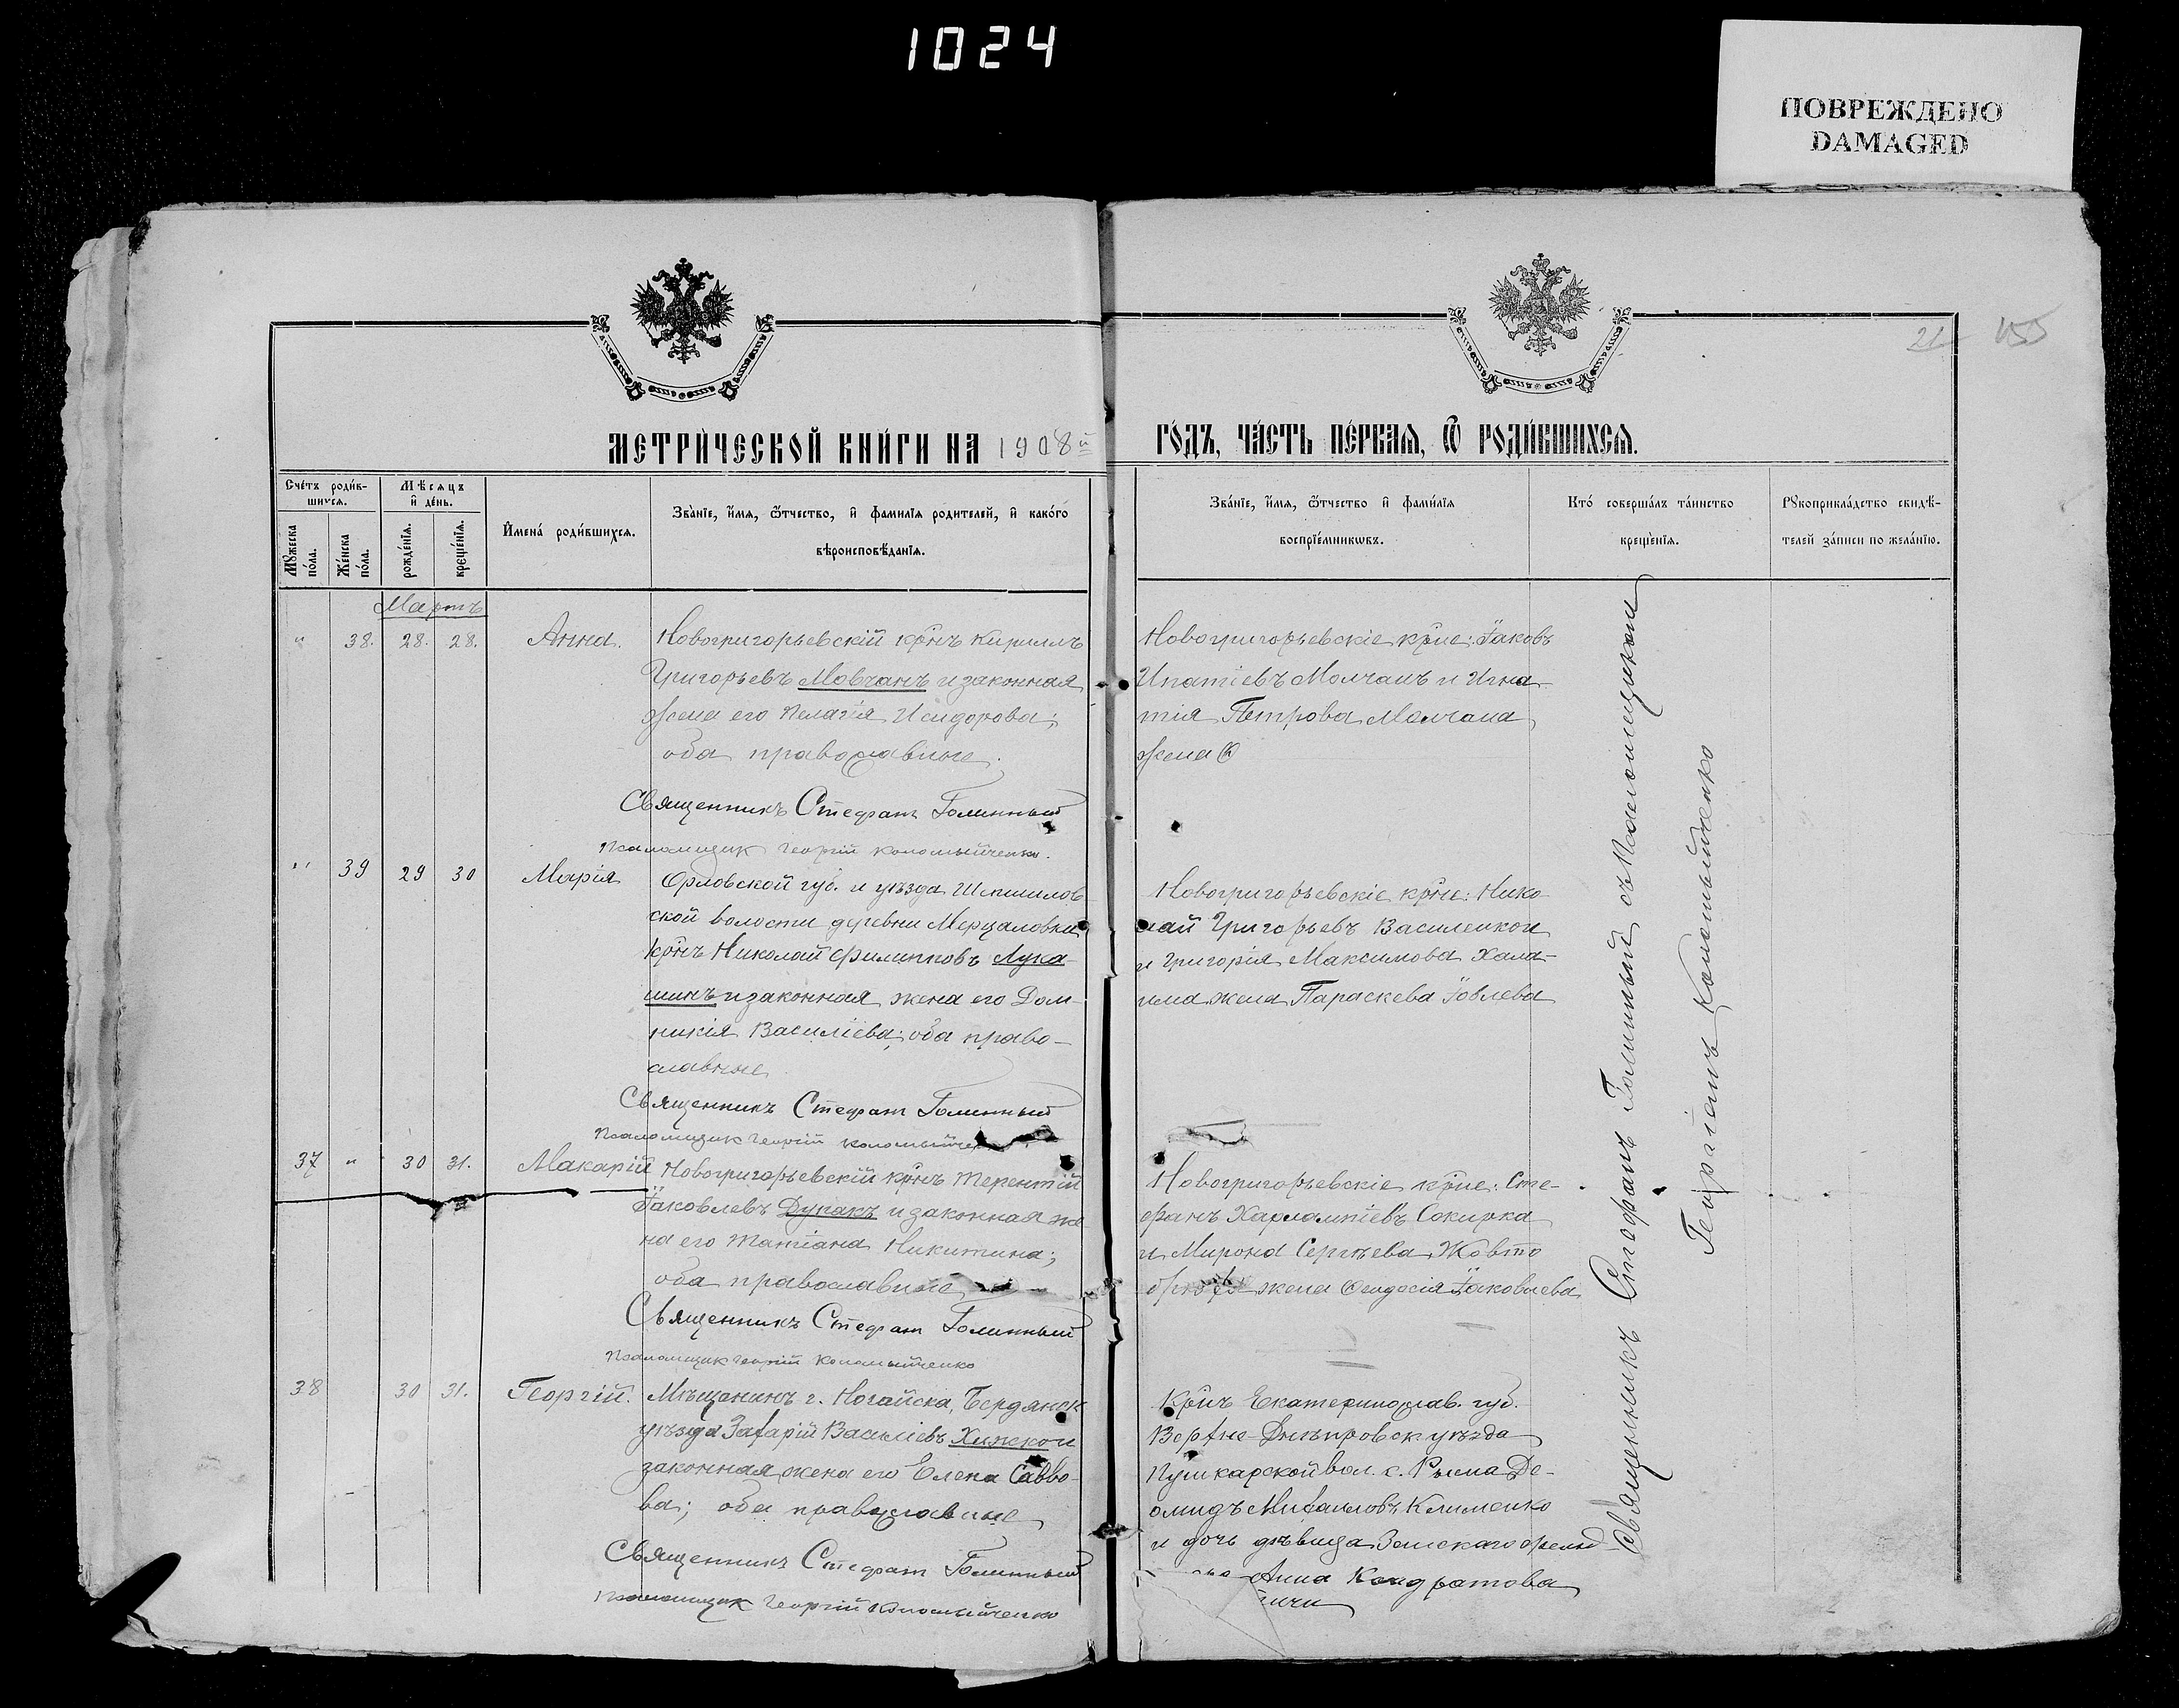 1024
ПОВРЕЖДЕНО
DAMAGED
21
МЕТРИ́ЧЕСКОЙ КНИ́ГИ НА 1908й
ГО́ДЪ, ЧА́СТЬ ПЕ́РВАЯ, Ѿ РОДИ́ВШИХСЯ.
Сче́тъ роди́в-
шихся.
Мѣсяцъ
и де́нь.
Мꙋжеска по́ла.
Же́нска по́ла.
рожде́нїя.
креще́нїя.
Имена́ роди́вшихся.
Зва́нїе, и́мя, ѻ́тчество, и фами́лїя роди́телей, и како́го
вѣроисповѣ́данїя.
Зва́нїе, и́мя, ѻ́тчество и фами́лїя
воспрїе́мниковъ.
Кто́ соверша́лъ та́инство
креще́нїя.
Рꙋкоприкла́дство свидѣ́-
телей за́писи по жела́нїю.
Мартъ
" 38. 28. 28. Анна.
Новогригорьевскій крнъ Кириллъ
Григорьевъ Мовчанъ и законная
жена его Пелагія Исидорова;
оба православные.
Священникъ Стефанъ Голинный
Псаломщик Георгій Коломыйченко.
Новогригорьевскіе крне: Іаковъ
Ипатіевъ Молчанъ и Игна-
тія Петрова Молчана
жена
" 39 29 30 Марія
Орловской губ. и уѣзда
ской волости деревни Мерцаловки
крнъ Николай Филипповъ Лука-
шинъ и законная жена его Дом-
никія Василіева; оба право-
славные
Священникъ Стефанъ Голинный
Псаломщик Георгій Коломыйче
Новогригорьевскіе крне: Нико-
лай Григорьевъ Василенко и
и Григорія Максимова Хала-
има жена Параскева Іовлева
37 " 30 31. Макарій
Новогригорьевскій крнъ Терентій
Іаковлевъ Дукакъ и законная же
на его Татіана Никитина;
оба православные
Священникъ Стефанъ Голинный
Псаломщик Георгій Коломыйченко
Новогригорьевскіе крне: Сте-
фанъ Харлампіевъ Сокирка
и Мирона Сергѣева Жовто
жена Феодосія Іаковлева
38 30 31. Георгій.
Мѣщанинъ г. Ногайска, Бердянск
уѣзда Захарій Василіевъ
законная жена его Елена Савво-
ва; оба православные
Священникъ Стефанъ Голинный
Псаломщик Георгій Коломыйченко
Крнъ Екатеринослав. губ.
Верхне-Днѣпровск уѣзда
Пушкарской вол. с. Де-
омидъ Михаиловъ Клименко
и дочь дѣвица Земскаго фельд-
Анна Кондратова
Священникъ Стефанъ Голинный съ Псаломщикомъ
Георгіемъ Коломыйченко